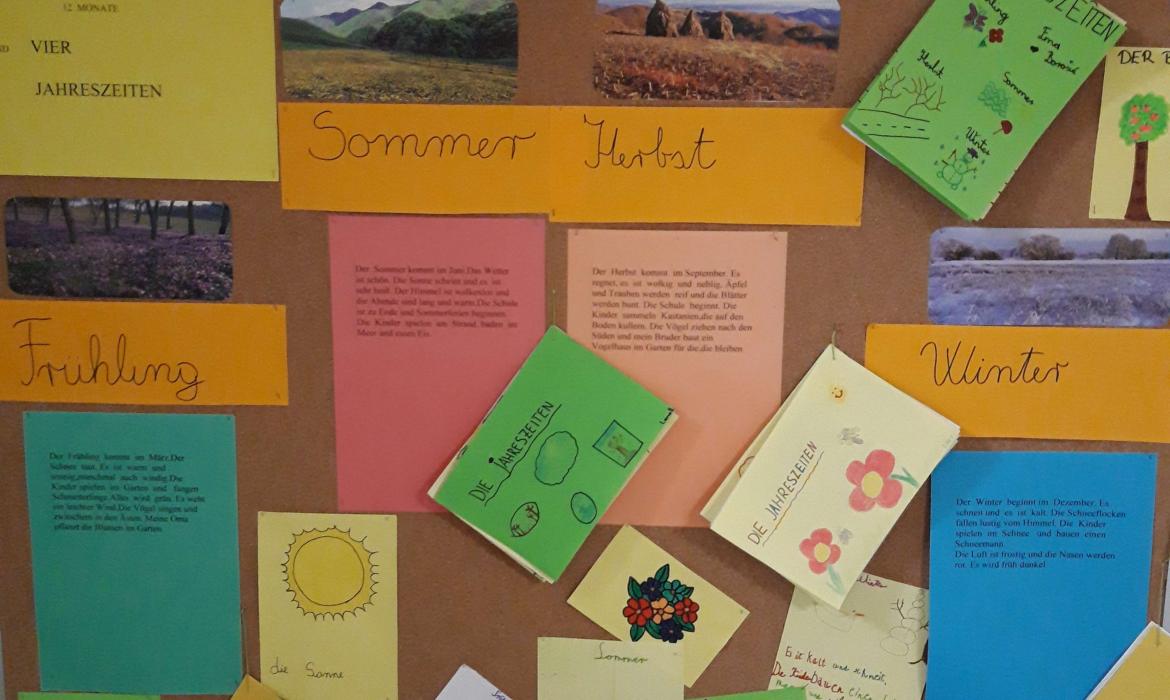 12 MONATE
VIER
JAHRESZEITEN
Sommer
Herbst
ZEITEN
Herbst
Sommer
Winter
DER B
Frühling
Winter
Der Sommer kommt im Juni.Das Wetter
ist schön. Die Sonne scheint und es ist
sehr heiß. Der Himmel ist wolkenlos und
die Abende sind lang und warm.Die Schule
ist zu Ende und Sommerferien beginnen.
Die Kinder spielen am Strand, baden im
Meer und essen Eis.
Der Herbst kommt im September. Es
regnet, es ist wolkig und neblig. Äpfel
und Trauben werden reif und die Blätter
werden bunt. Die Schule beginnt. Die
Kinder sammeln Kastanien,die auf den
Boden kullern. Die Vögel ziehen nach den
Süden und mein Bruder baut ein
Vogelhaus im Garten für die,die bleiben
Der Frühling kommt im März.Der
Schnee taut. Es ist warm und
sonnig,manchmal auch windig.Die
Kinder spielen im Garten und fangen
Schmetterlinge.Alles wird grün. Es weht
ein leichter Wind.Die Vögel singen und
zwitschern in den Ästen. Meine Oma
pflanzt die Blumen im Garten
DIE JAHRESZEITEN
DIE JAHRESZEITEN
Der Winter beginnt im Dezember. Es
schneit und es ist kalt. Die Schneeflocken
fallen lustig vom Himmel. Die Kinder
spielen im Schnee und bauen einen
Schneemann.
Die Luft ist frostig und die Nasen werden
rot. Es wird früh dunkel
die Sonne
Sommer
Es ist kalt und schneit,